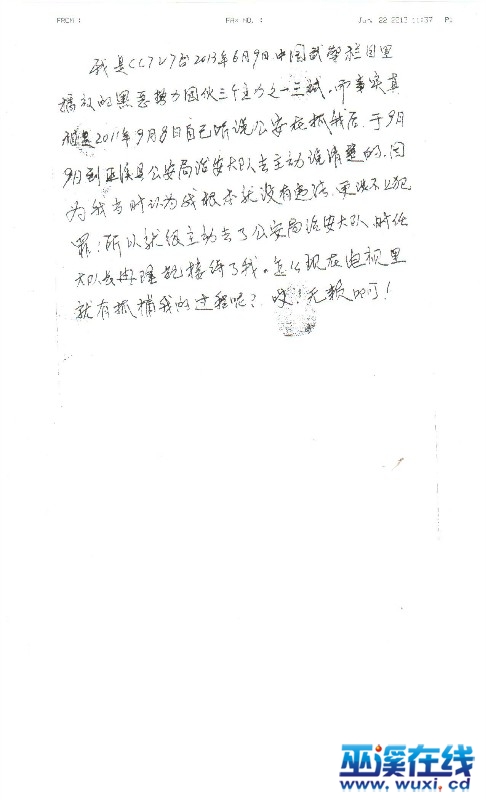 FROM : FAX NO. : Jun. 22 2013 11:37 P1
我是CCTV7台2013年6月9日中国武警栏目里
播放的黑恶势力团伙三个主力之一三斌。而事实真
相是2011年9月8日自己听说公安在抓我后,于9月
9日到巫溪县公安局治安大队去主动说清楚的,因
为我当时认为我根本就没有违法,更谈不上犯
罪!所以就主动去了公安局治安大队,时任
大队长 接待了我。怎么现在电视里
就有抓捕我的过程呢?哎!无赖啊!
巫溪在线
www.wuxi.cd